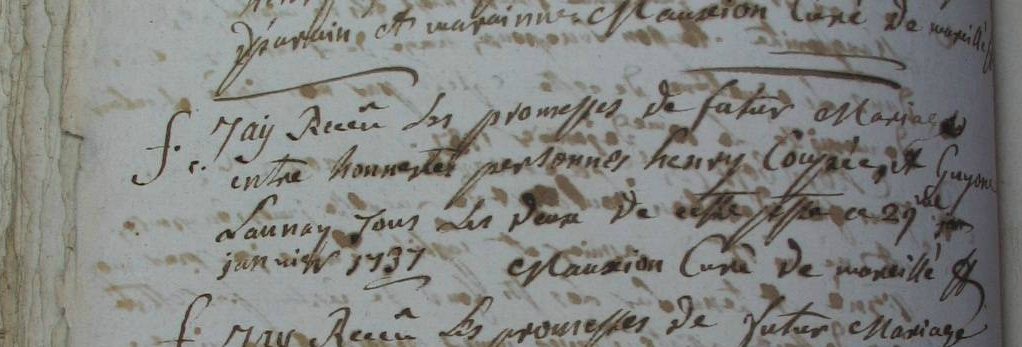 parain et marainne Mauxion Curé de moreillé
f. J'aÿ Receü Les promesses de futur Mariage
entre honnestes personnes henry Coupée, et Guyonne
Launay tous Les deux de cette psse ce 29
janvier 1737 Mauxion Curé de moreillé
f. J'ay Receü Les promesses de futur Mariage